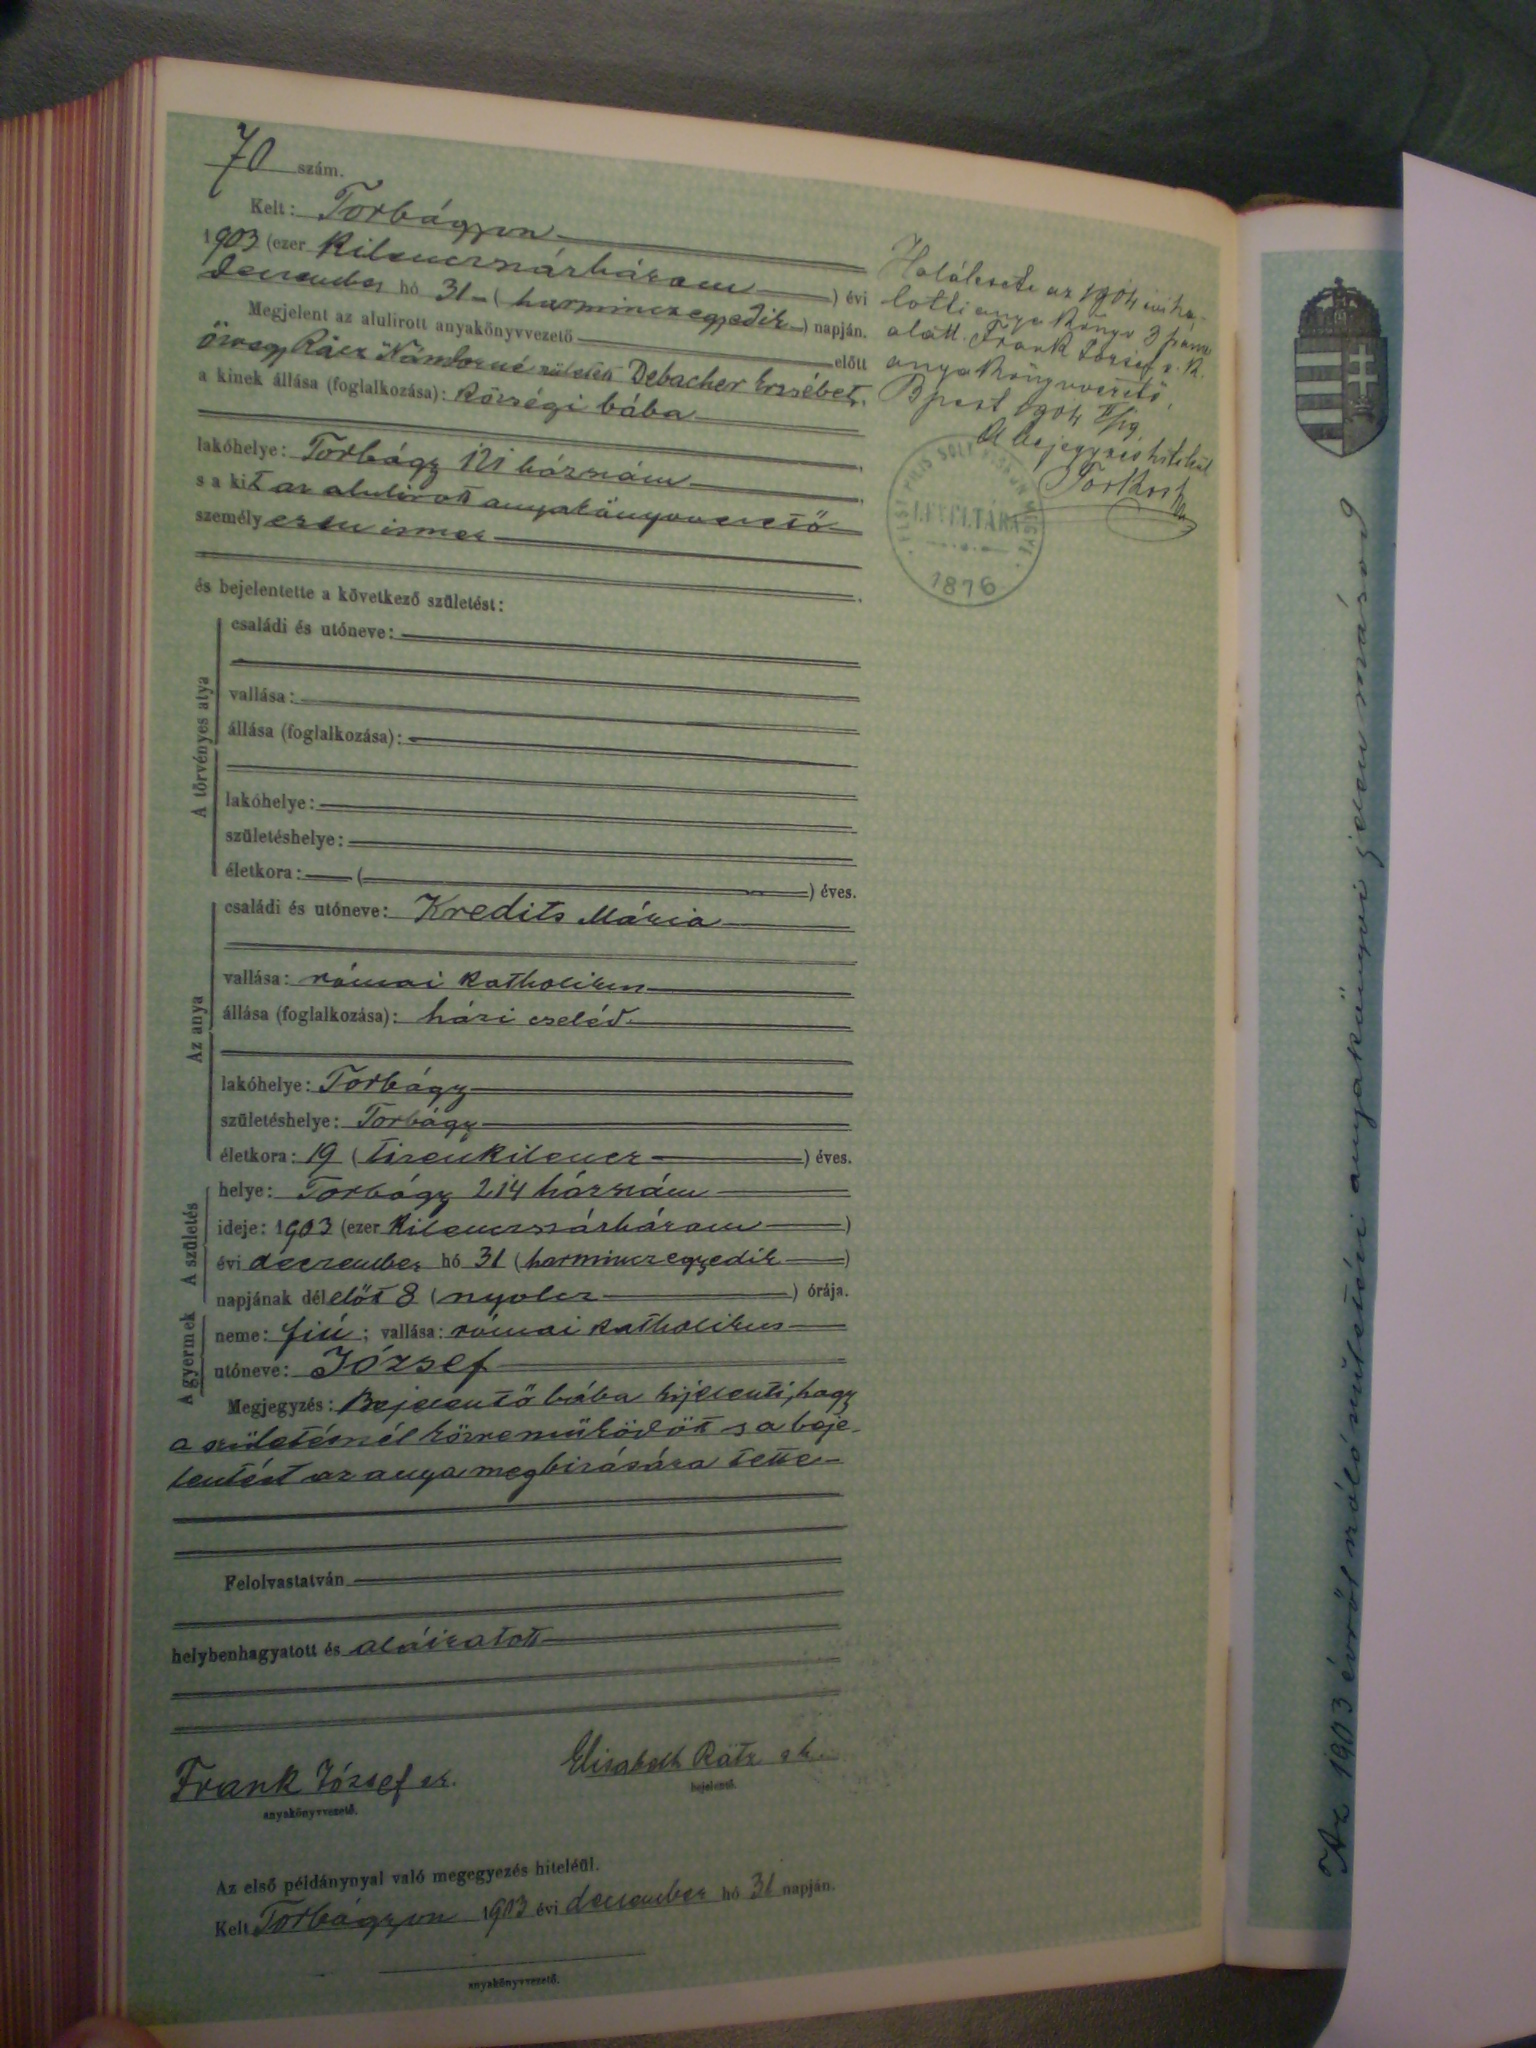 70 szám.
Kelt: Torbágyon
1903 (ezer kilenczszázhárom) évi
deczember hó 31 (harminczegyedik) napján.
Megjelent az alulirott anyakönyvvezető előtt
özvegy Rácz Nándorné született Debacher Erzsébet,
a kinek állása (foglalkozása): községi bába
lakóhelye: Torbágy 121 házszám
s a kit az alulirott anyakönyvvezető
személyesen ismer
és bejelentette a következő születést:
A törvényes atya
családi és utóneve:
vallása:
állása (foglalkozása):
lakóhelye:
születéshelye:
életkora: ( ) éves.
Az anya
családi és utóneve: Kredits Mária
vallása: római katholikus
állása (foglalkozása): házi cseléd
lakóhelye: Torbágy
születéshelye: Torbágy
életkora: 19 (tizenkilencz) éves.
A születés
helye: Torbágy 214 házszám
ideje: 1903 (ezer kilenczszázhárom)
évi deczember hó 31 (harminczegyedik)
napjának délelőtt 8 (nyolcz) órája.
A gyermek
neme: fiú; vallása: római katholikus
utóneve: József
Megjegyzés: Bejelentő bába kijelenti, hogy
a születésnél közreműködött s a beje-
lentést az anya megbizására tette
Felolvastatván
helybenhagyatott és aláiratott
Frank József sk.
anyakönyvvezető.
Elisabeth Rátz sk.
bejelentő.
Az első példánynyal való megegyezés hiteléül.
Kelt Torbágyon 1903 évi deczember hó 31 napján.
anyakönyvvezető.
Halálesete az 1904 évi ha-
lotti anyakönyv 3 szám
alatt. Frank József s. k.
anyakönyvvezető.
Bpest 1904 II/19.
A bejegyzés hiteléül
PEST PILIS SOLT KISKUN MEGYE
LEVÉLTÁRA
1876
Az 1903 évről szóló születési anyakönyvi jelen másod